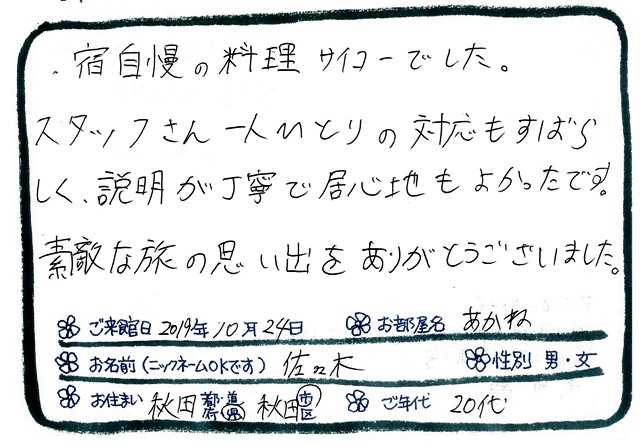 宿自慢の料理サイコーでした。
スタッフさん一人ひとりの対応もすばら
しく、説明が丁寧で居心地もよかったです。
素敵な旅の思い出をありがとうございました。
ご来館日 2019年10月24日 お部屋名 あかね
お名前(ニックネームOKです) 佐々木 性別 男・女
お住まい 秋田 都道府県 秋田 市区 ご年代 20代